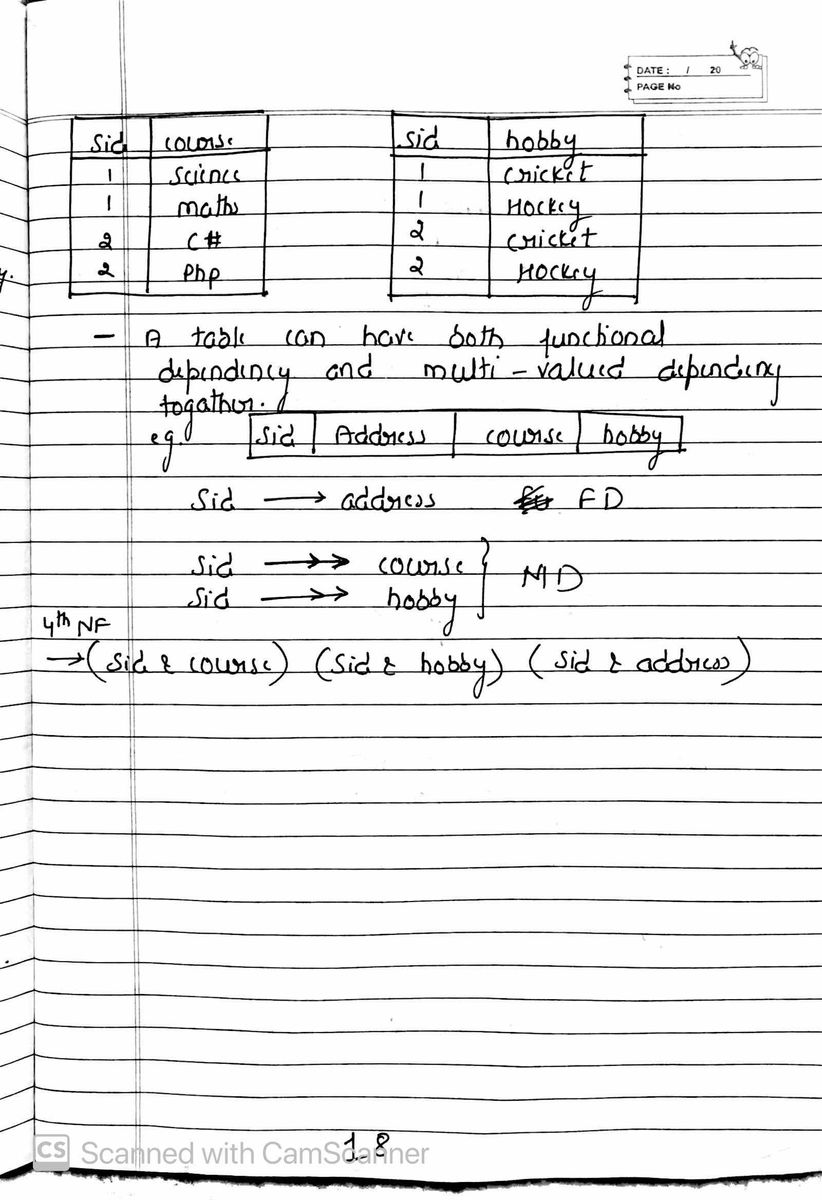 DATE : / 20
PAGE No
sid course
1 science
1 maths
2 C#
2 Php
sid hobby
1 cricket
1 Hockey
2 cricket
2 Hockey
- A table can have both functional
dependency and multi-valued dependency
togather.
eg. sid Address course hobby
sid → address FD
sid →→ course
sid →→ hobby } MD
4th NF
→ (sid & course) (sid & hobby) (sid & address)
18
CS Scanned with CamScanner